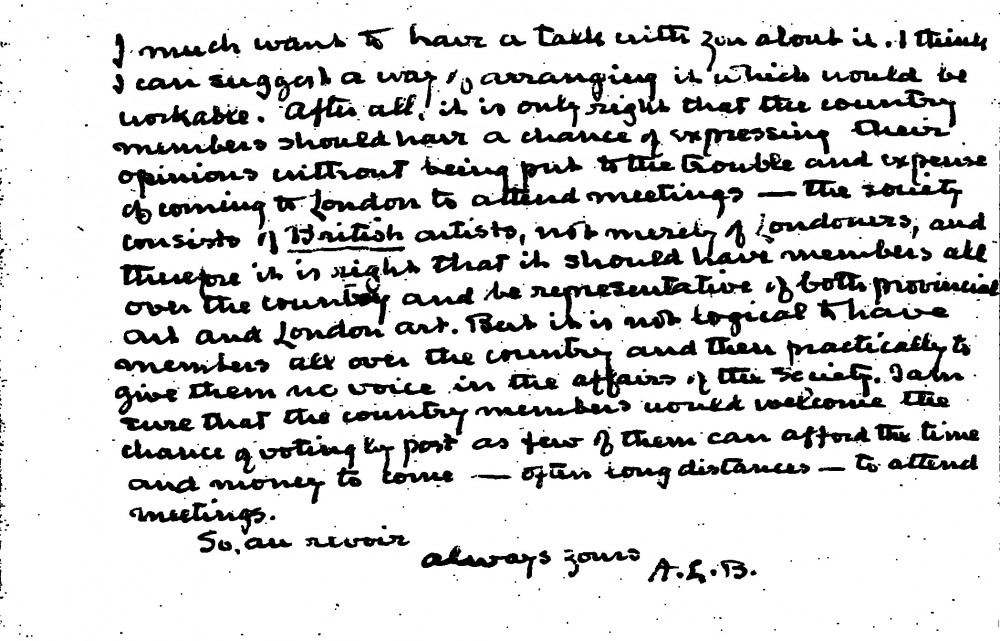 I much want to have a talk with you about it. I think
I can suggest a way of arranging it which would be
workable. After all, it is only right that the country
members should have a chance of expressing their
opinions without being put to the trouble and expense
of coming to London to attend meetings — the society
consists of British artists, not merely of Londoners, and
therefore it is right that it should have members all
over the country and be representative of both provincial
art and London art. But it is not logical to have
members all over the country and then practically to
give them no voice in the affairs of the Society. I am
sure that the country members would welcome the
chance of voting by post as few of them can afford the time
and money to come — often long distances — to attend
meetings.
So, au revoir
always yours
A.L.B.